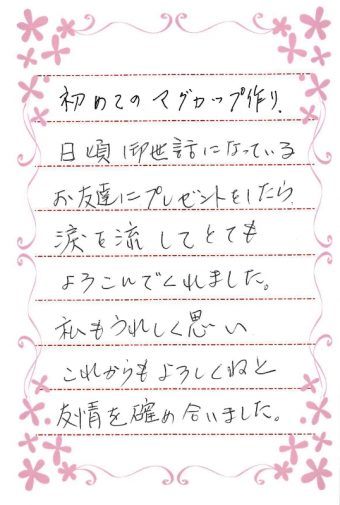 初めてのマグカップ作り、
日頃御世話になっている
お友達にプレゼントをしたら
涙を流してとても
よろこんでくれました。
私もうれしく思い
これからもよろしくねと
友情を確め合いました。